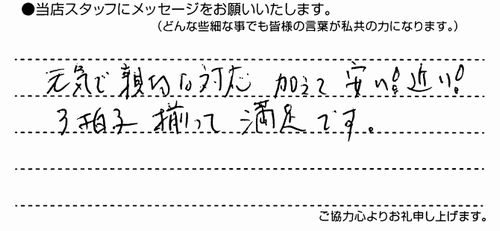 ●当店スタッフにメッセージをお願いいたします。
（どんな些細な事でも皆様の言葉が私共の力になります。）
元気で親切な対応 加えて 安い!近い!
3拍子 揃って 満足です。
ご協力心よりお礼申し上げます。